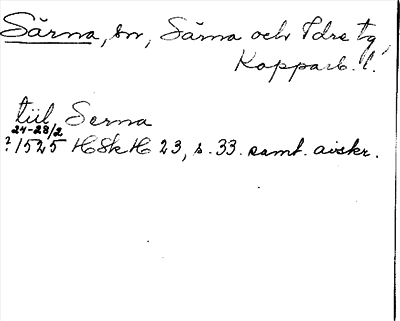 Särna, sn, Särna och Idre tg,
Kopparb. l.
till Serna
24-28/2
? 1525 HSkH 23, s. 33. samt. avskr.